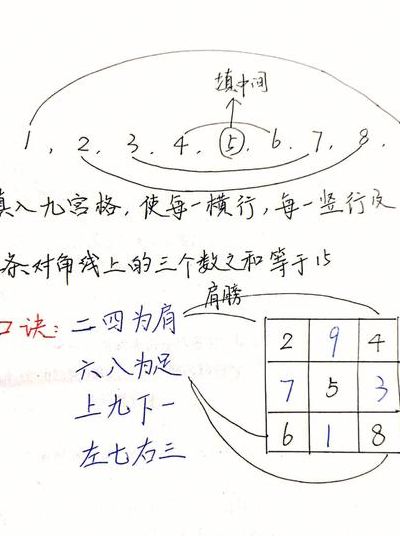 填中间
1, 2, 3, 4, 5, 6, 7, 8,
填入九宫格，使每一横行，每一竖行及
条对角线上的三个数之和等于15
肩膀
口诀：二四为肩
六八为足
上九下一
左七右三
2 9 4
7 5 3
6 1 8